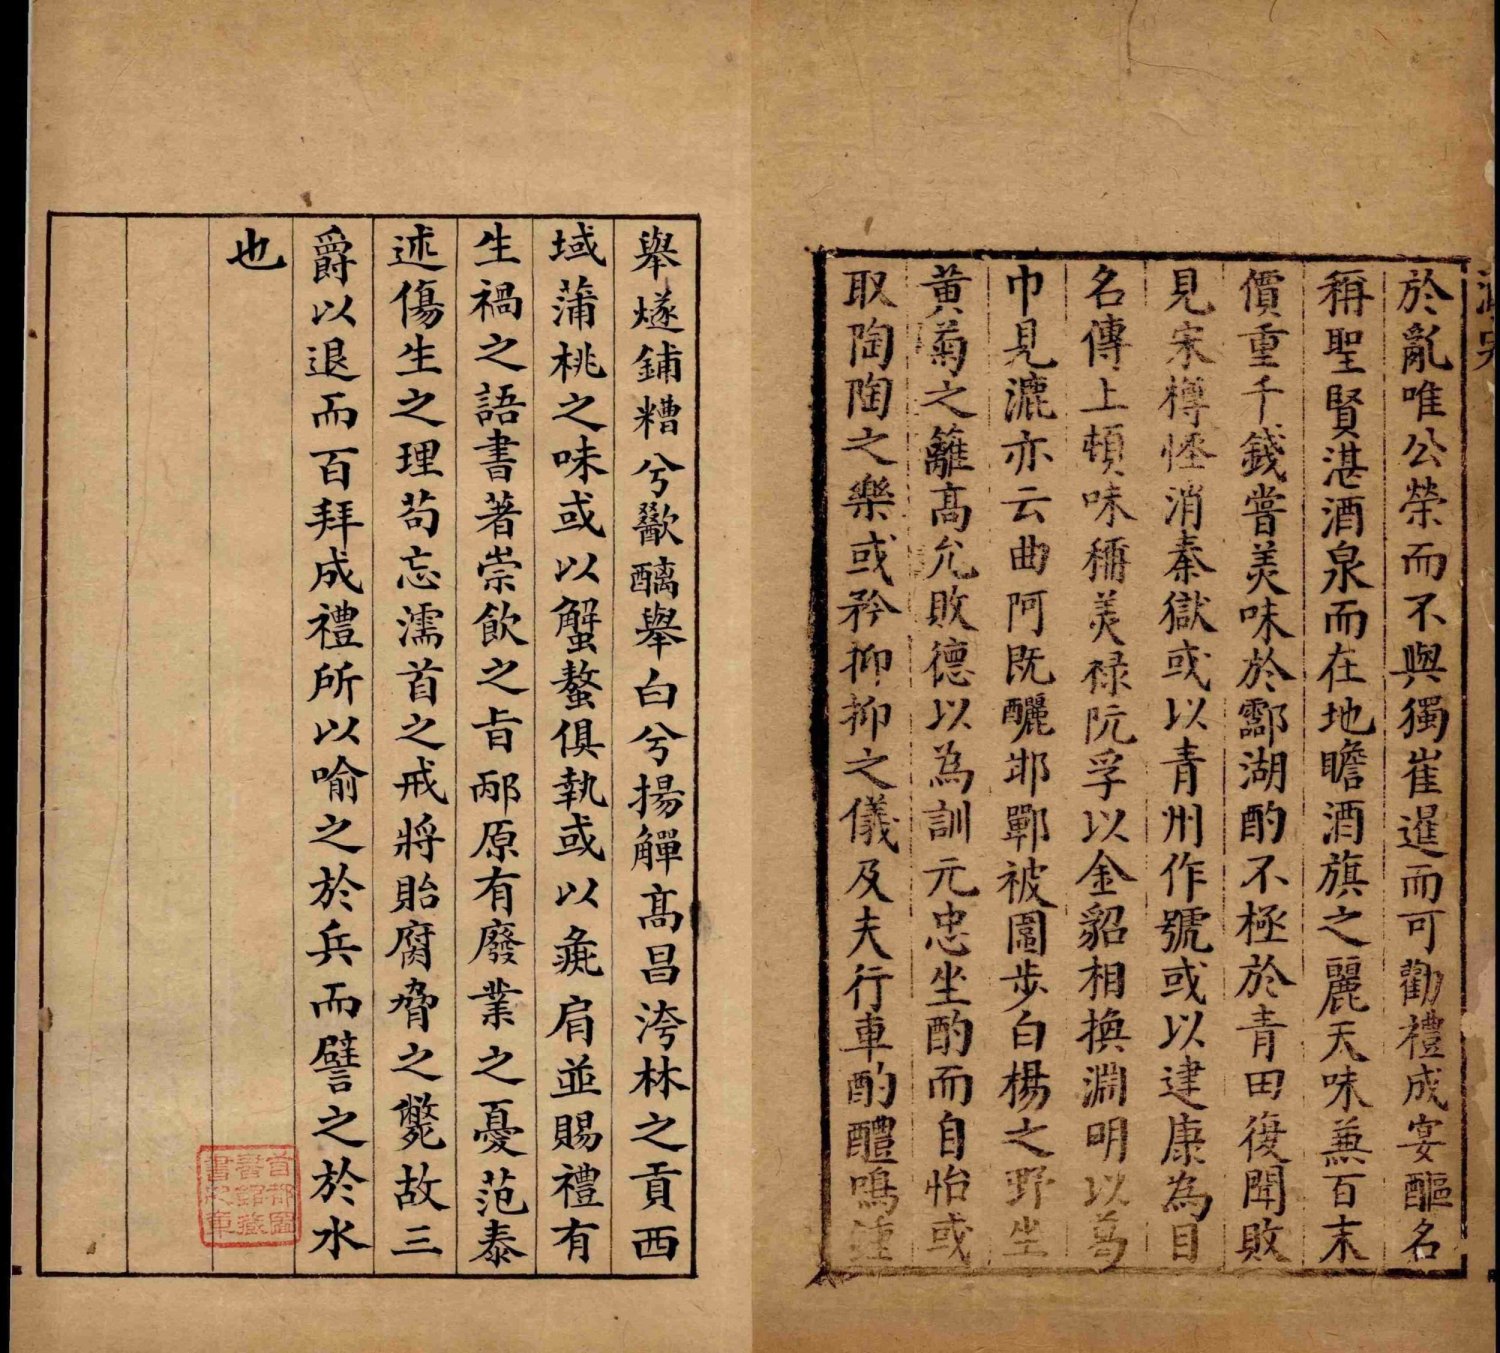 酒史
於亂唯公榮而不與獨崔暹而可勸禮成宴醧名
稱聖賢湛酒泉而在地瞻酒旗之麗天味兼百末
價重千錢嘗美味於酃湖酌不極於青田復聞敗
見宋樽怪消秦獄或以青州作號或以建康為目
名傳上頓味稱美祿阮孚以金貂相換淵明以葛
巾見漉亦云曲阿既釃邯鄲被圍步白楊之野坐
黃菊之籬高允敗德以為訓元忠坐酌而自怡或
取陶陶之樂或矜抑抑之儀及夫行車酌醴鳴鍾
舉燧鋪糟兮歠醨舉白兮揚觶高昌洿林之貢西
域蒲桃之味或以蟹螯俱執或以彘肩並賜禮有
生禍之語書著崇飲之旨邴原有廢業之憂范泰
述傷生之理苟忘濡首之戒將貽腐脅之斃故三
爵以退而百拜成禮所以喻之於兵而譬之於水
也
首都圖
書館藏
書之章